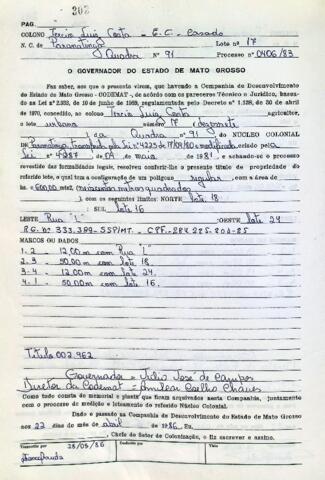 PAG. 202
COLONO Ircio Luiz Costa - E.C. Casado
N. C. de Paranatinga Lote n.º 17
Quadra nº 91 Processo nº 0406/83
O GOVERNADOR DO ESTADO DE MATO GROSSO
Faz saber, aos que a presente virem, que havendo a Companhia de Desenvolvimento
do Estado de Mato Grosso - CODEMAT -, de acôrdo com os pareceres Técnico e Jurídico, basea-
do na Lei nº 2.933, de 10 de junho de 1969, regulamentada pelo Decreto nº 1.128, de 30 de abril
de 1970, concedido ao colono Ircio Luiz Costa agricultor,
o lote urbano número 17 ( dezessete
) da Quadra nº 91 do NÚCLEO COLONIAL
DE Paranatinga, criada pela
lei nº 4287 de 04 de maio de 1981, e achando-se o processo
revestido das formalidades legais, resolveu conferir-lhe o presente título de propriedade do
referido lote, o qual tem a configuração de um polígono regular, com a área de
600,00 (seiscentos metros quadrados
) com os seguintes limites: NORTE lote 18
SUL lote 16
LESTE Rua "L" OESTE lote 24
MARCOS OU DADOS
1 - 2 - 12,00 m com Rua "L"
2 - 3 - 50,00 m com lote 18.
3 - 4 - 12,00 m com lote 24.
4 - 1 - 50,00 m com lote 16.
Titulo 002.962
Governador = Julio José de Campos
Diretor da Codemat = Amilcar Coelho Chaves
Como tudo consta do memorial e planta que ficam arquivados nesta Companhia, juntamente
com o processo de medição e loteamento do referido Núcleo Colonial.
Dado e passado na Companhia de Desenvolvimento do Estado de Mato Grosso
aos 22 dias do mês de abril de 1986. Eu,
, Chefe do Setor de Colonização, o fiz escrever e assino.
Transcrito por 28/05/86 Conferido por Visto